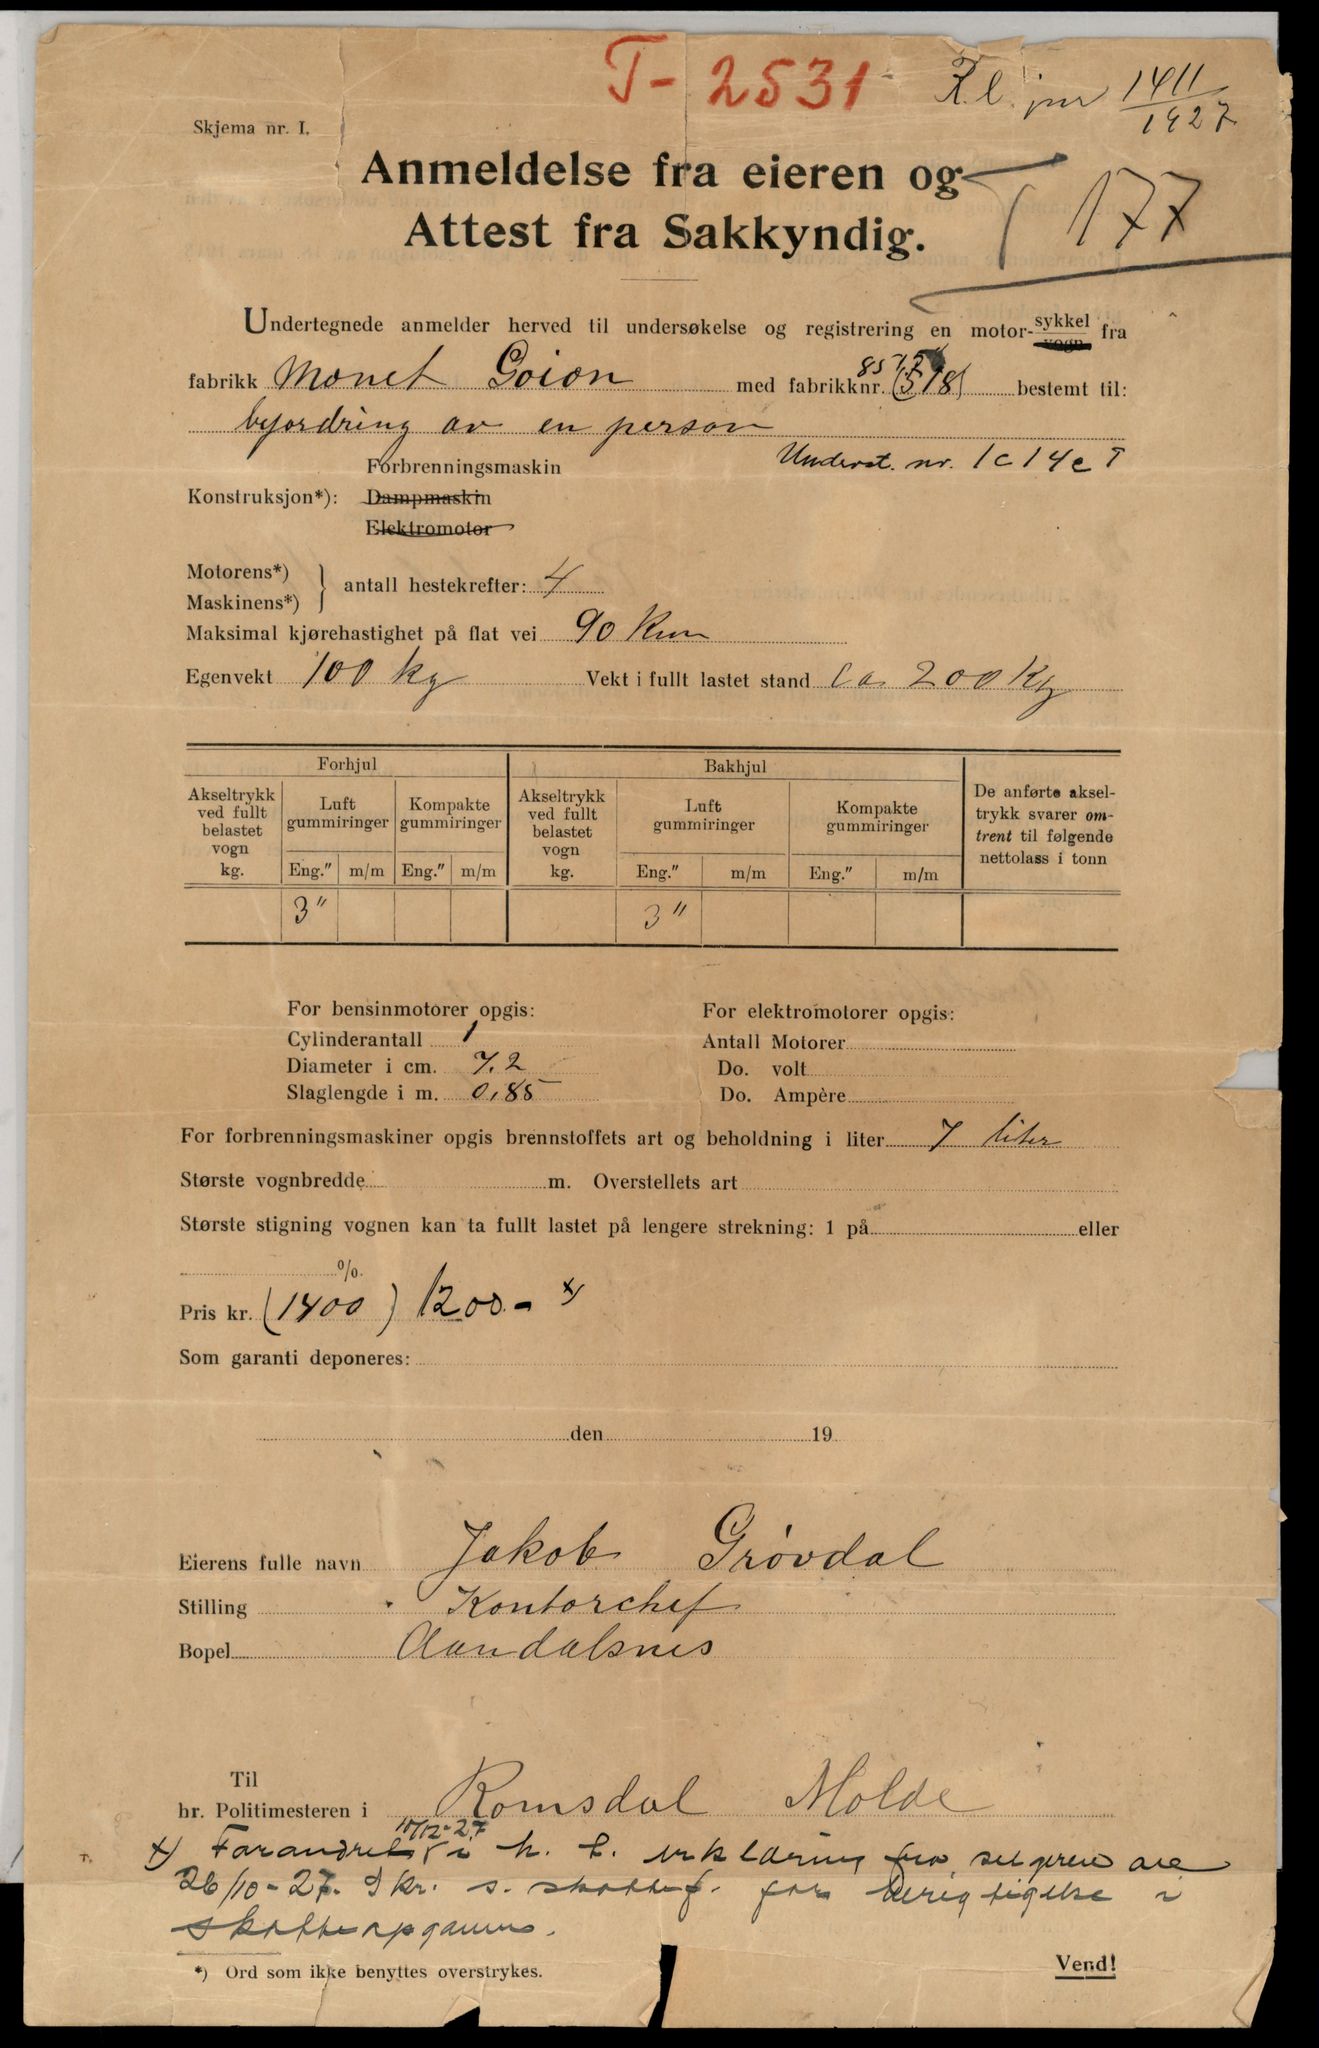 T-2531
R.l. jnr 1411/1927
Skjema nr. I.
Anmeldelse fra eieren og
Attest fra Sakkyndig.
T 177
Undertegnede anmelder herved til undersøkelse og registrering en motor-sykkel/vogn fra
fabrikk Monet Goion med fabrikknr. (518) bestemt til:
befordring av en person
Underst. nr. 1c14eT
Forbrenningsmaskin
Konstruksjon*): Dampmaskin
Elektromotor
Motorens*)
Maskinens*) } antall hestekrefter: 4
Maksimal kjørehastighet på flat vei 90 Km
Egenvekt 100 kg Vekt i fullt lastet stand ca. 200 Kg
Forhjul Bakhjul
Akseltrykk ved fullt belastet vogn kg. Luft gummiringer Kompakte gummiringer Akseltrykk ved fullt belastet vogn kg. Luft gummiringer Kompakte gummiringer De anførte akseltrykk svarer omtrent til følgende nettolass i tonn
Eng." m/m Eng." m/m Eng." m/m Eng." m/m
3" 3"
For bensinmotorer opgis:
Cylinderantall 1
Diameter i cm. 7.2
Slaglengde i m. 0,85
For elektromotorer opgis:
Antall Motorer
Do. volt
Do. Ampère
For forbrenningsmaskiner opgis brennstoffets art og beholdning i liter 7 liter
Største vognbredde m. Overstellets art
Største stigning vognen kan ta fullt lastet på lengere strekning: 1 på eller
%.
Pris kr. (1400) 1200.- x)
Som garanti deponeres:
den 19
Eierens fulle navn Jakob Grøvdal
Stilling Kontorchef
Bopel Aandalsnes
Til
hr. Politimesteren i Romsdal Molde
10/12-27
x) Forandret i h. t. erklæring fra selgeren av
26/10-27. J kr. s. skattef. for berigtigelse i
skatteopgaven.
*) Ord som ikke benyttes overstrykes.
Vend!